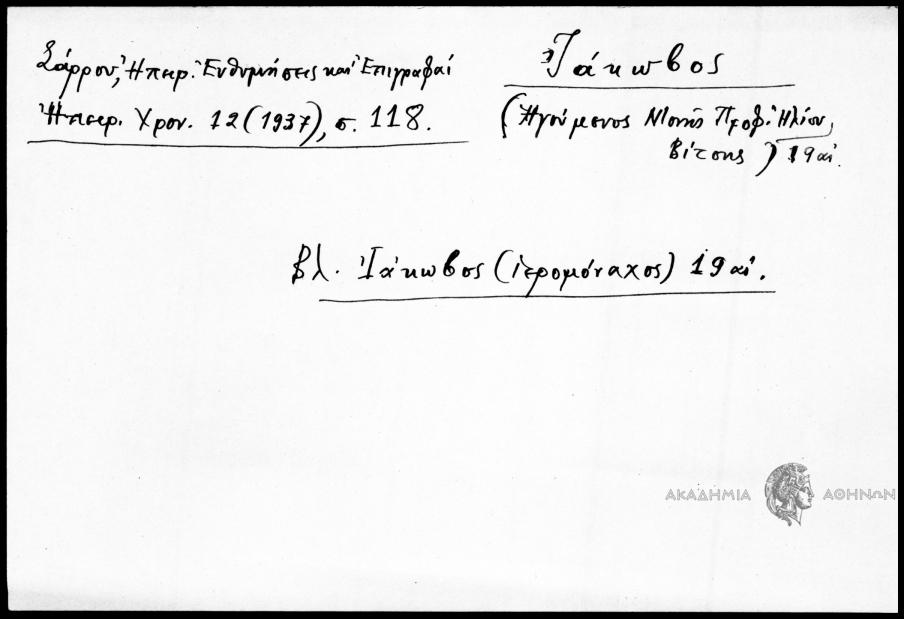 Σάρρου, Ἠπειρ. Ἐνθυμήσεις καὶ Ἐπιγραφαί
Ἠπειρ. Χρον. 12 (1937), σ. 118.
Ἰάκωβος
(Ἡγούμενος Μονῆς Προφ. Ἠλίου,
Βίτσης) 19 αἰ.
βλ. Ἰάκωβος (ἱερομόναχος) 19 αἰ.
ΑΚΑΔΗΜΙΑ ΑΘΗΝΩΝ